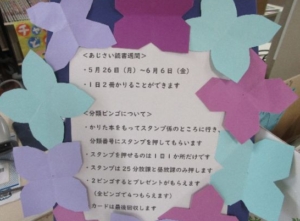 ＜あじさい読書週間＞
・５月２６日（月）～６月６日（金）
・１日２冊かりることができます
＜分類ビンゴについて＞
・かりた本をもってスタンプ係のところに行き、
分類番号にスタンプを押してもらいます
・スタンプを押せるのは１日１か所だけです
・スタンプは２５分放課と昼放課のみ押します
・２ビンゴするとプレゼントがもらえます
（全ビンゴで４つもらえます）
カードは最後回収します